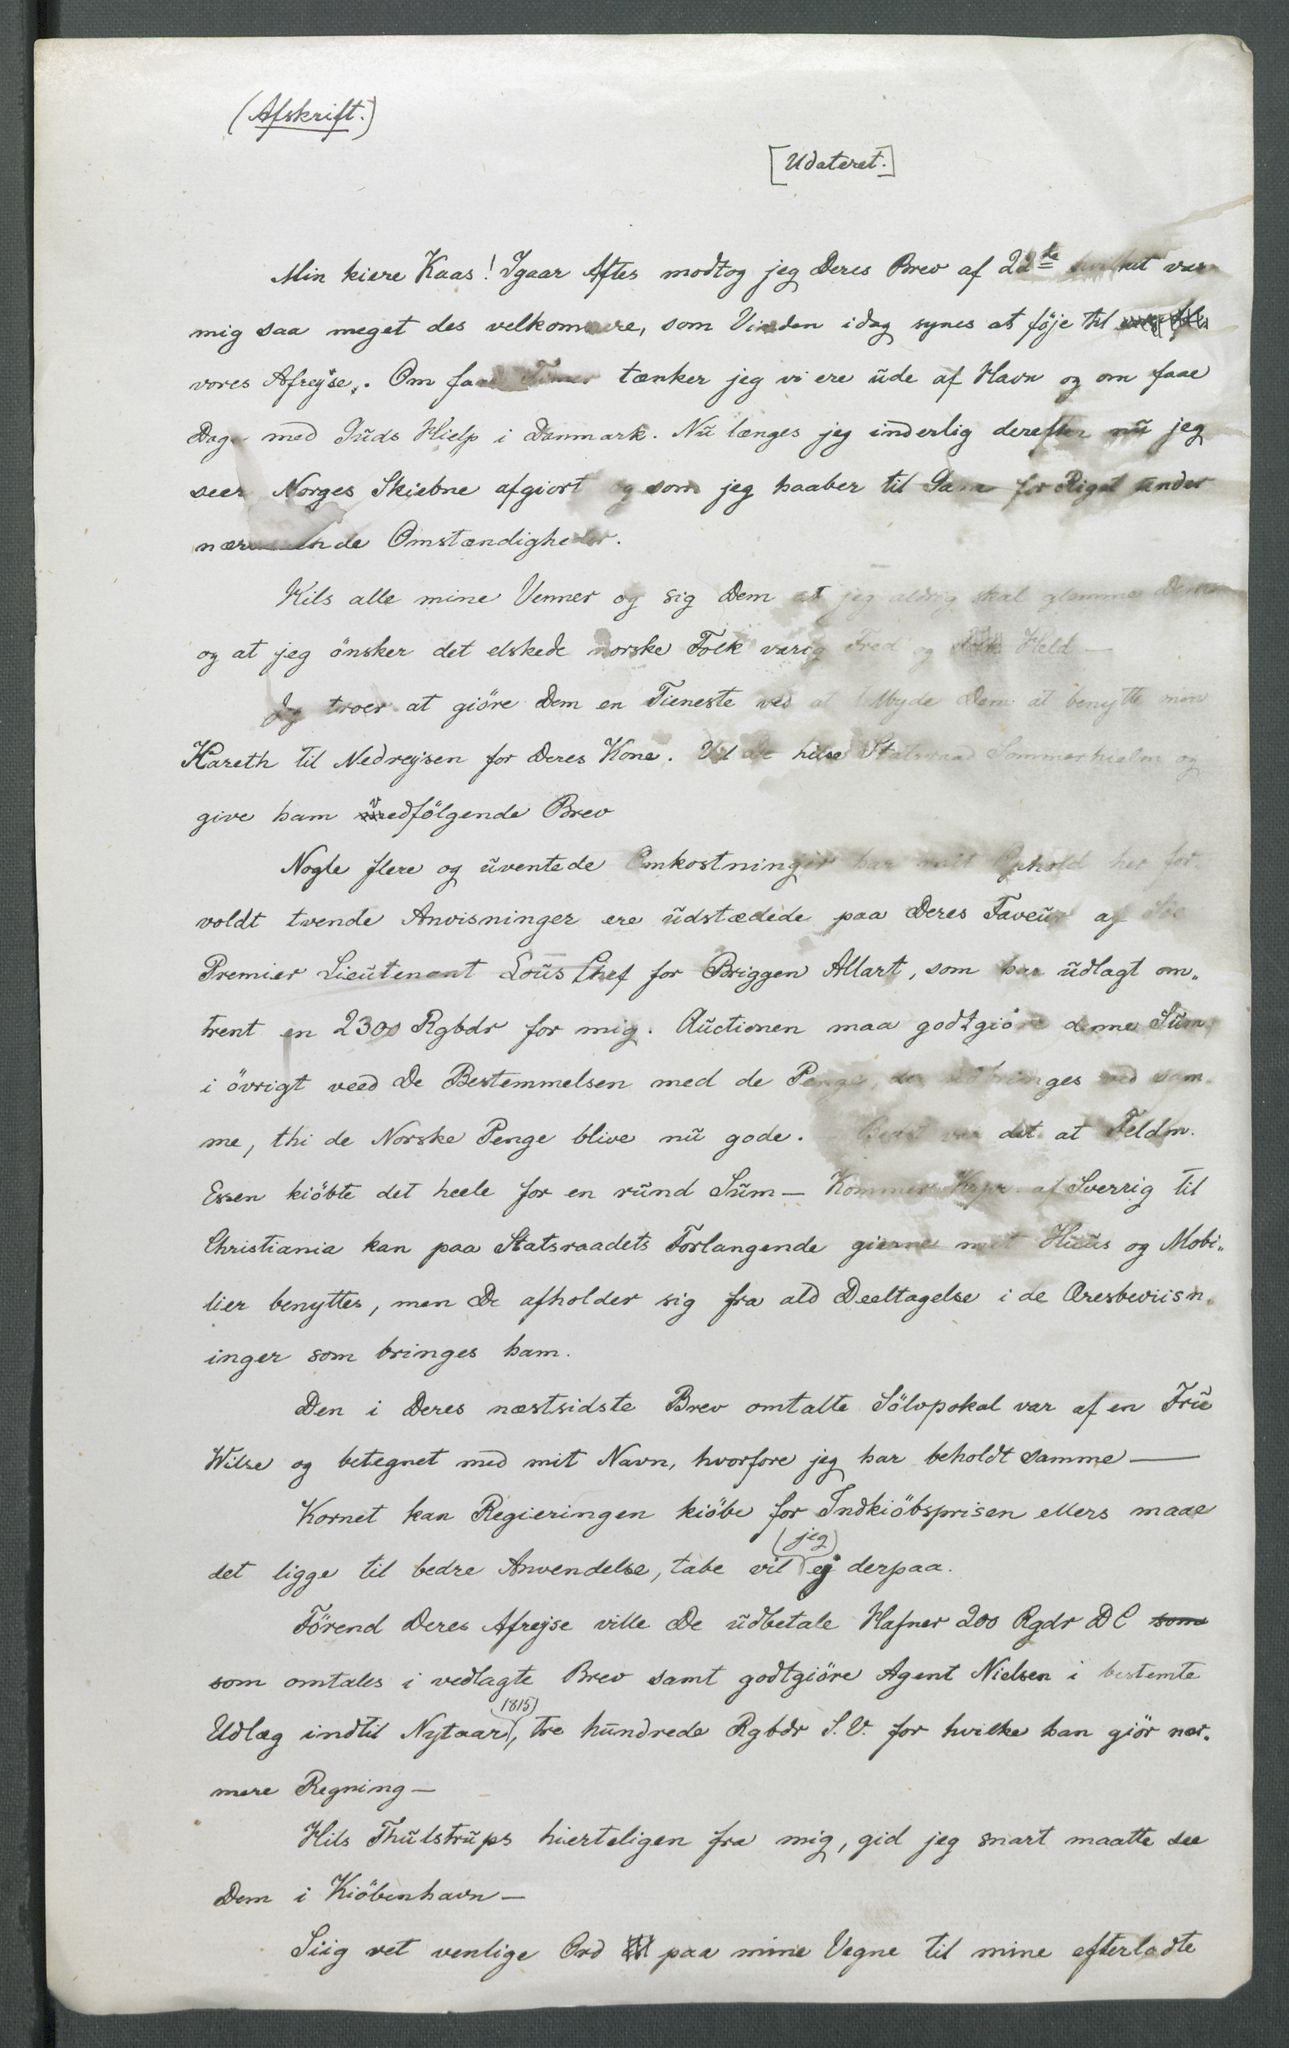 (Afskrift.)
[Udateret.]
Min kiere Kaas! Igaar Aftes modtog jeg Deres Brev af 22de hvilket var
mig saa meget des velkomnere, som Vinden idag synes at föje til
vores Afrejse. Om faae Timer tænker jeg vi ere ude af Havn og om faae
Dage med Guds Hielp i Danmark. Nu længes jeg inderlig derefter nu jeg
seer Norges Skiebne afgiort og som jeg haaber til Gavn for Riget under
nærværende Omstændigheder.
Hils alle mine Venner og sig Dem at jeg aldrig skal glemme Dem
og at jeg önsker det elskede norske Folk varig Fred og Held —
Jeg troer at giöre Dem en Tieneste ved at tilbyde Dem at benytte min
Kareth til Nedrejsen for Deres Kone. Vil De hilse Statsraad Sommerhielm og
give ham vedfölgende Brev
Nogle flere og uventede Omkostninger har mit Ophold her for-
voldt tvende Anvisninger ere udstædede paa Deres Faveur af
Premier Lieutenant Lous Chef for Briggen Allart, som har udlagt om„
trent en 2300 Rgbdr for mig. Auctionen maa godtgiöre denne Sum,
i övrigt veed De Bestemmelsen med de Penge, der udbringes ved sam-
me, thi de Norske Penge blive nu gode. — Bedst var det at Feldm.
Essen kiöbte det heele for en rund Sum — Kommer Krpr. af Sverrig til
Christiania kan paa Statsraadets Forlangende gierne mit Huus og Mobi„
lier benyttes, men De afholder sig fra ald Deeltagelse i de Æresbeviisn„
inger som bringes ham.
Den i Deres næstsidste Brev omtalte Sölvpokal var af en Frue
Wilse og betegnet med mit Navn, hvorfore jeg har beholdt samme —
Kornet kan Regieringen kiöbe for Indkiöbsprisen ellers maae
det ligge til bedre Anvendelse, tabe vil (jeg) ej derpaa.
Förend Deres Afrejse ville De udbetale Hafner 200 Rgdr DC som
som omtales i vedlagte Brev samt godtgiöre Agent Nielsen i bestemte
Udlæg indtil Nytaar (1815), tre hundrede Rgbdr S.V. for hvilke han giör nær-
mere Regning —
Hils Thulstrups hierteligen fra mig, gid jeg snart maatte see
Dem i Kiöbenhavn —
Siig ret venlige Ord paa mine Vegne til mine efterladte